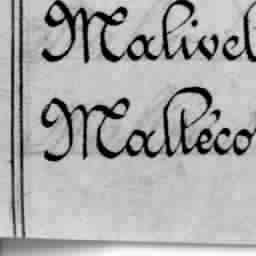 Malivel
Malléco